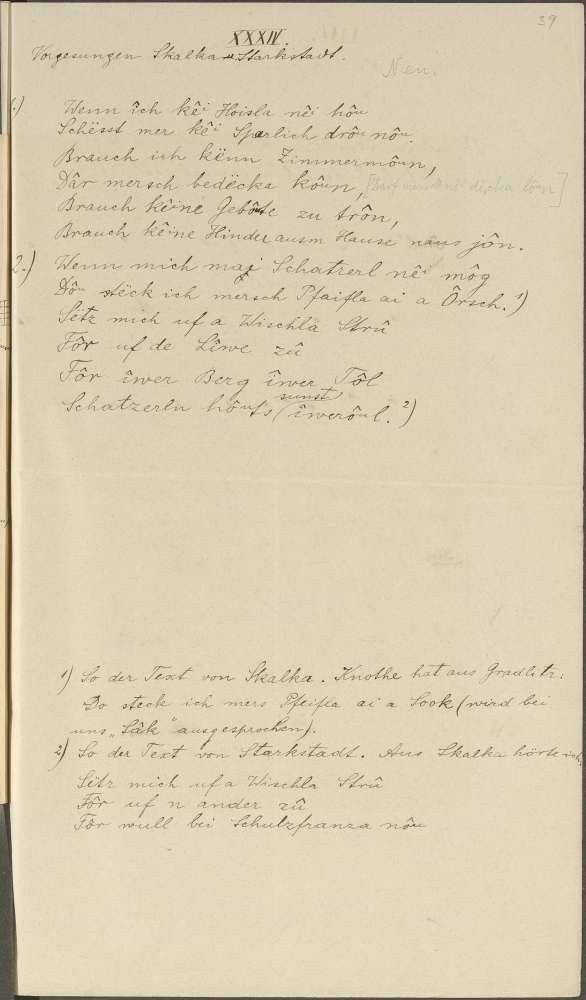 39
XXXIV.
Vorgesungen Skalka u. Starkstadt.
Neu.
1.) Wenn ich kêi Hoisla nêi hôu
Schësst mer kêi Sparlich drôu nôu.
Brauch ich kënn Zimmermôun,
Dâr mersch bedëcka kôun,
Brauch kêine Gebôte zu trôn,
Brauch kêine Hinder ausm Hause naus jôn.
2.) Wenn mich maj Schatzerl nêi môg
Dôu stëck ich mersch Pfaifla ai a Ôrsch. 1)
Sëtz mich uf a Wischla Strû
Fôr uf de Lêwe zû
Fôr îwer Berg îwer Tôl
Schatzerln hôut's sunst îwerôul. 2)
1) So der Text von Skalka. Knothe hat aus Gradlitz:
Do steck ich mers Pfeifla ai a Sook (wird bei
uns „Sâk" ausgesprochen).
2) So der Text von Starkstadt. Aus Skalka hörte ich:
Sëtz mich uf a Wischla Strû
Fôr uf n ander zû
Fôr wull bei Schulzfranza nôu